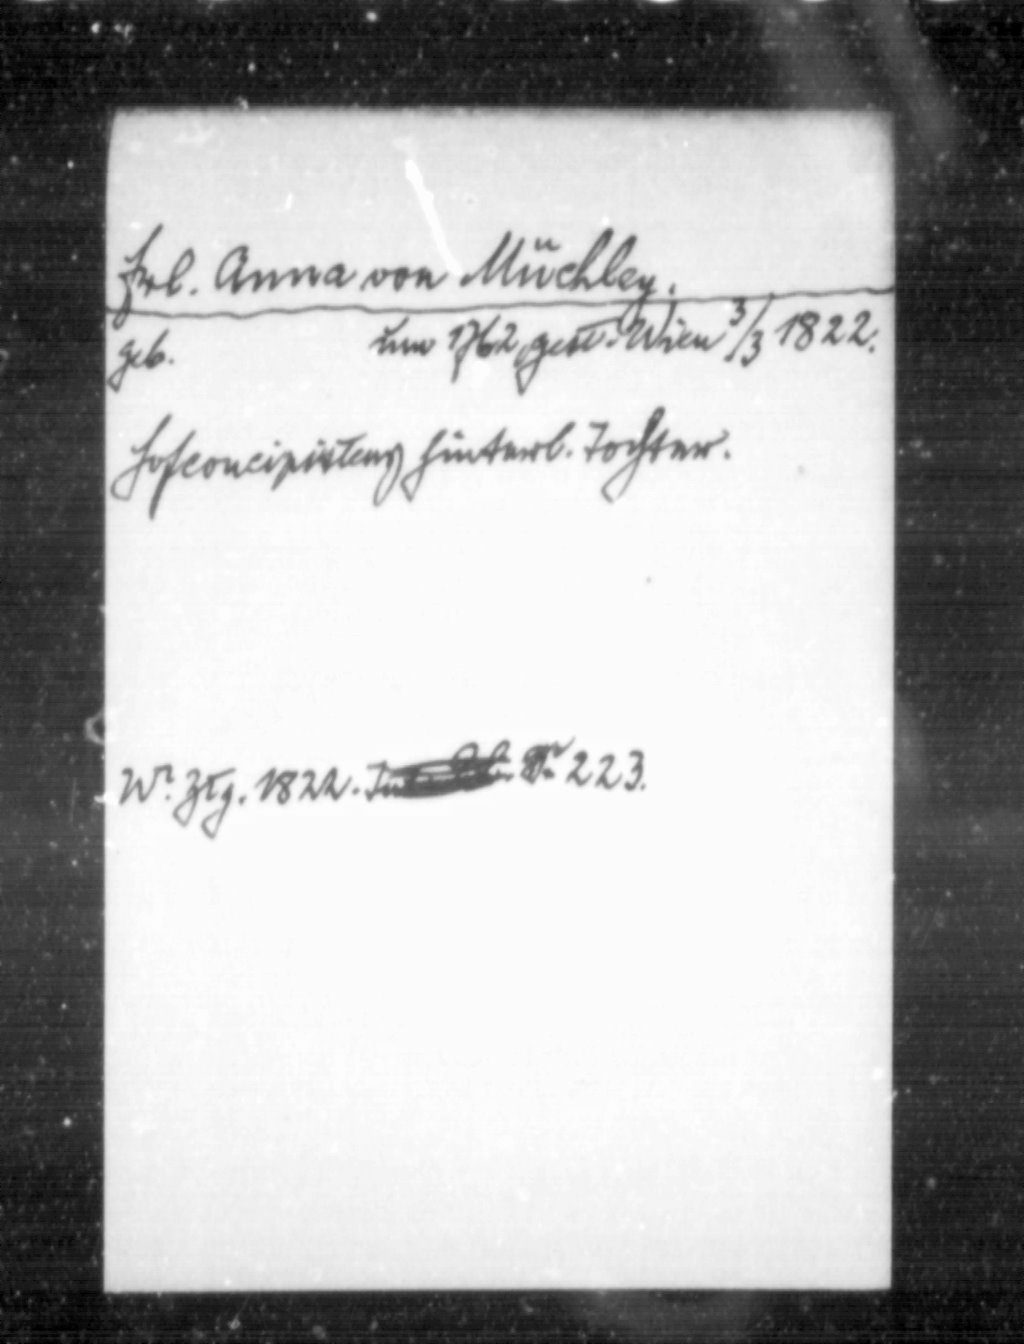 Frl. Anna von Müchley.
geb. um 1762, gest. Wien 3/3 1822.
Hofconcipistens hinterl. Tochter.
Wr. Ztg. 1822. 223.